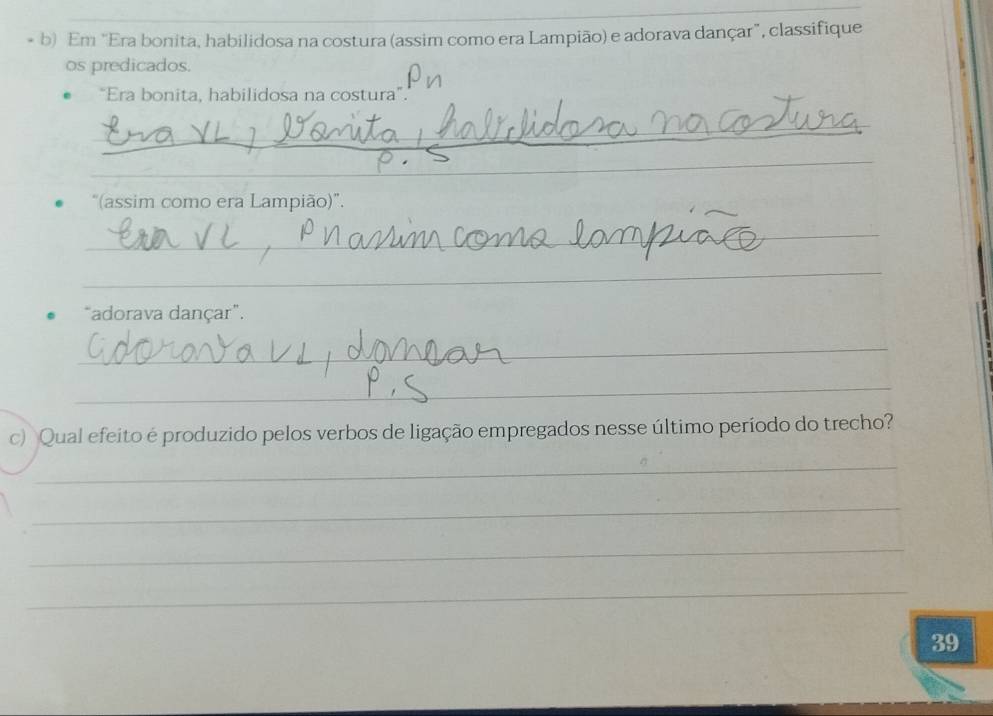 b) Em "Era bonita, habilidosa na costura (assim como era Lampião) e adorava dançar", classifique
os predicados.
Pn
• "Era bonita, habilidosa na costura".
Era VL, bonita, habilidosa na costura
P. S
• "(assim como era Lampião)".
era VL, Pn assim como lampião
• "adorava dançar".
adorava VL, dançar
P. S
c) Qual efeito é produzido pelos verbos de ligação empregados nesse último período do trecho?
39